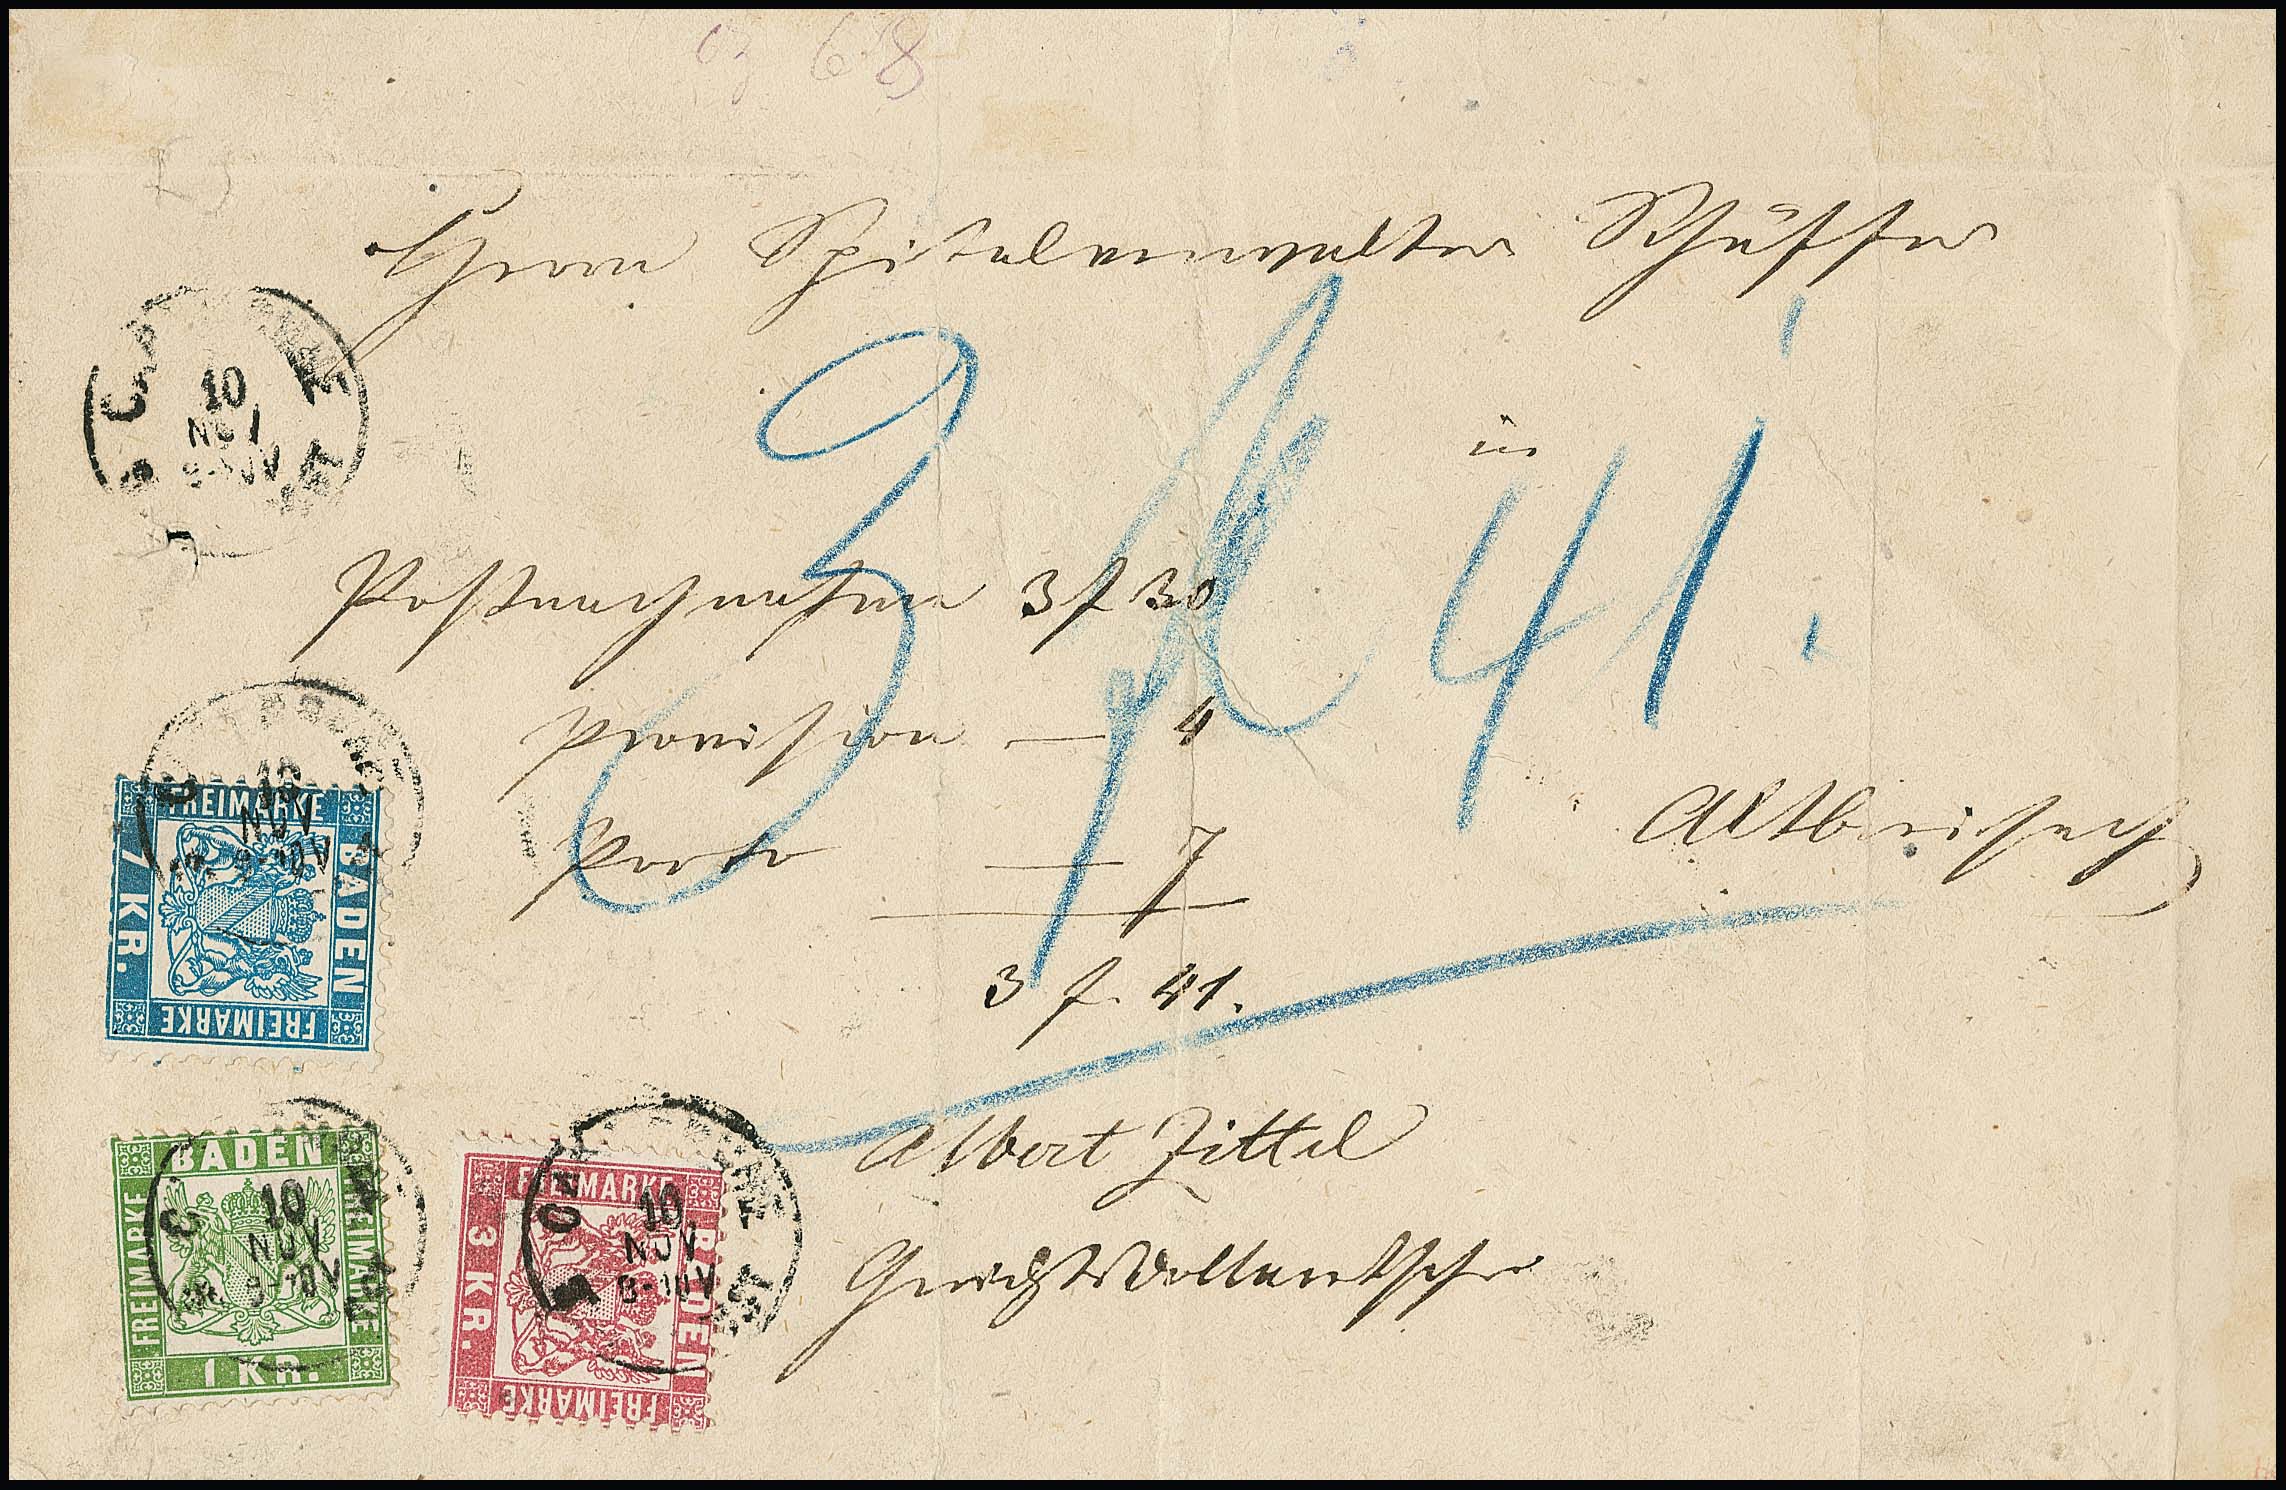 Herrn Spitalverwalter Schäffer
in
Postnachnahme 3 f 30
Provision — 4
Porto — 7
3 f. 41.
3 fl 41.
Altbreisach
Albert Zittel
Gerichtsvollzieher
10
NOV
FREIMARKE
BADEN
7 KR.
FREIMARKE
10
NOV
BADEN
FREIMARKE
FREIMARKE
1 KR.
10
NOV
FREIMARKE
BADEN
3 KR.
FREIMARKE
10
NOV